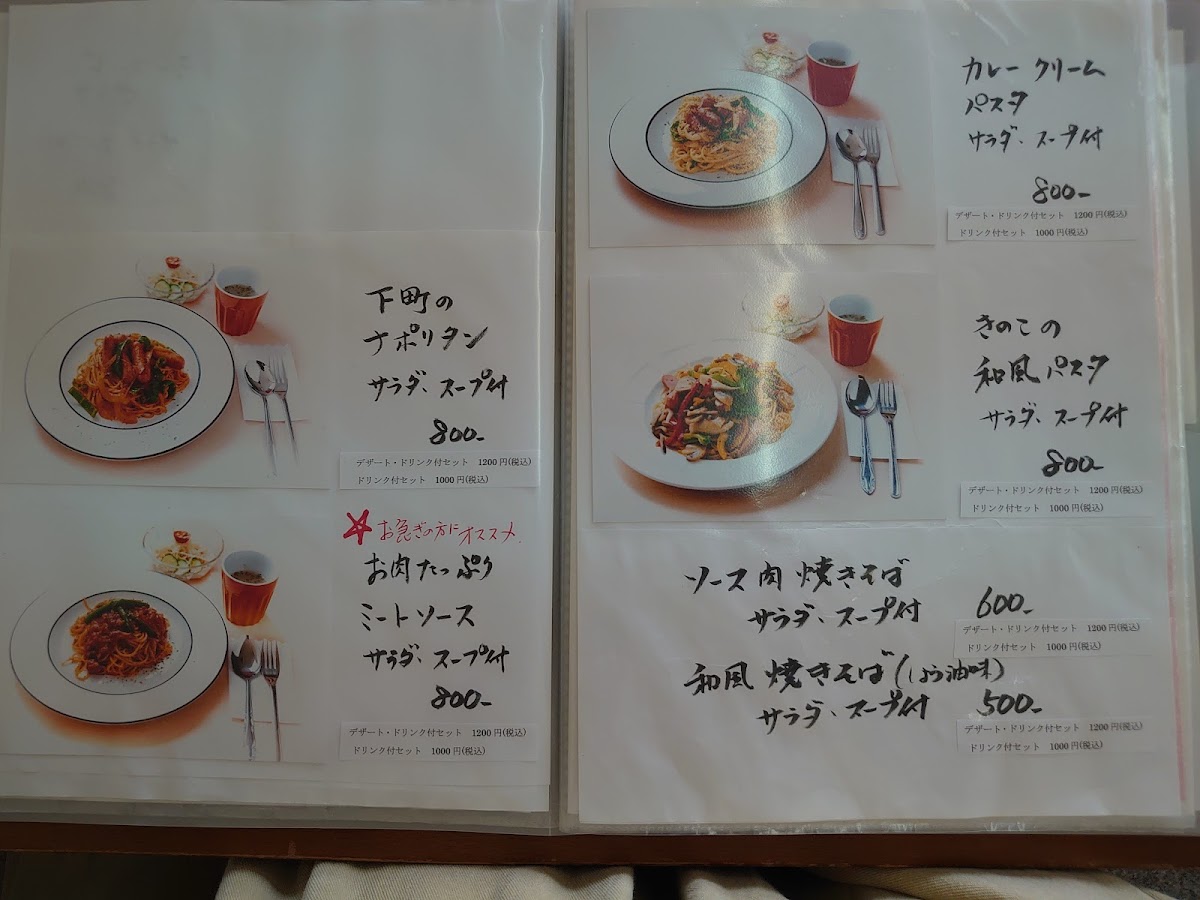 下町の
ナポリタン
サラダ、スープ付
800-
デザート・ドリンク付セット 1200円(税込)
ドリンク付セット 1000円(税込)
お急ぎの方にオススメ.
お肉たっぷり
ミートソース
サラダ、スープ付
800-
デザート・ドリンク付セット 1200円(税込)
ドリンク付セット 1000円(税込)
カレークリーム
パスタ
サラダ、スープ付
800-
デザート・ドリンク付セット 1200円(税込)
ドリンク付セット 1000円(税込)
きのこの
和風パスタ
サラダ、スープ付
800-
デザート・ドリンク付セット 1200円(税込)
ドリンク付セット 1000円(税込)
ソース肉焼きそば
サラダ、スープ付 600-
デザート・ドリンク付セット 1200円(税込)
ドリンク付セット 1000円(税込)
和風焼きそば(しょう油味)
サラダ、スープ付 500-
デザート・ドリンク付セット 1200円(税込)
ドリンク付セット 1000円(税込)